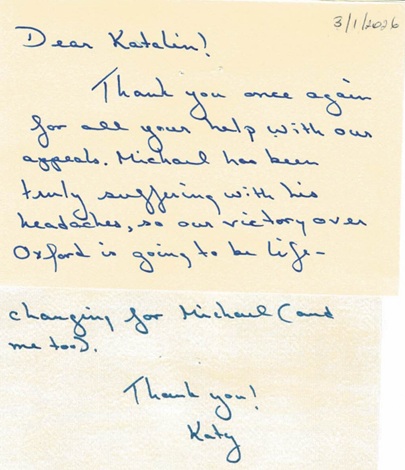 3/1/2026
Dear Katalin!
Thank you once again
for all your help with our
appeals. Michael has been
truly suffering with his
headaches, so our victory over
Oxford is going to be life-
changing for Michael (and
me too).
Thank you!
Katy